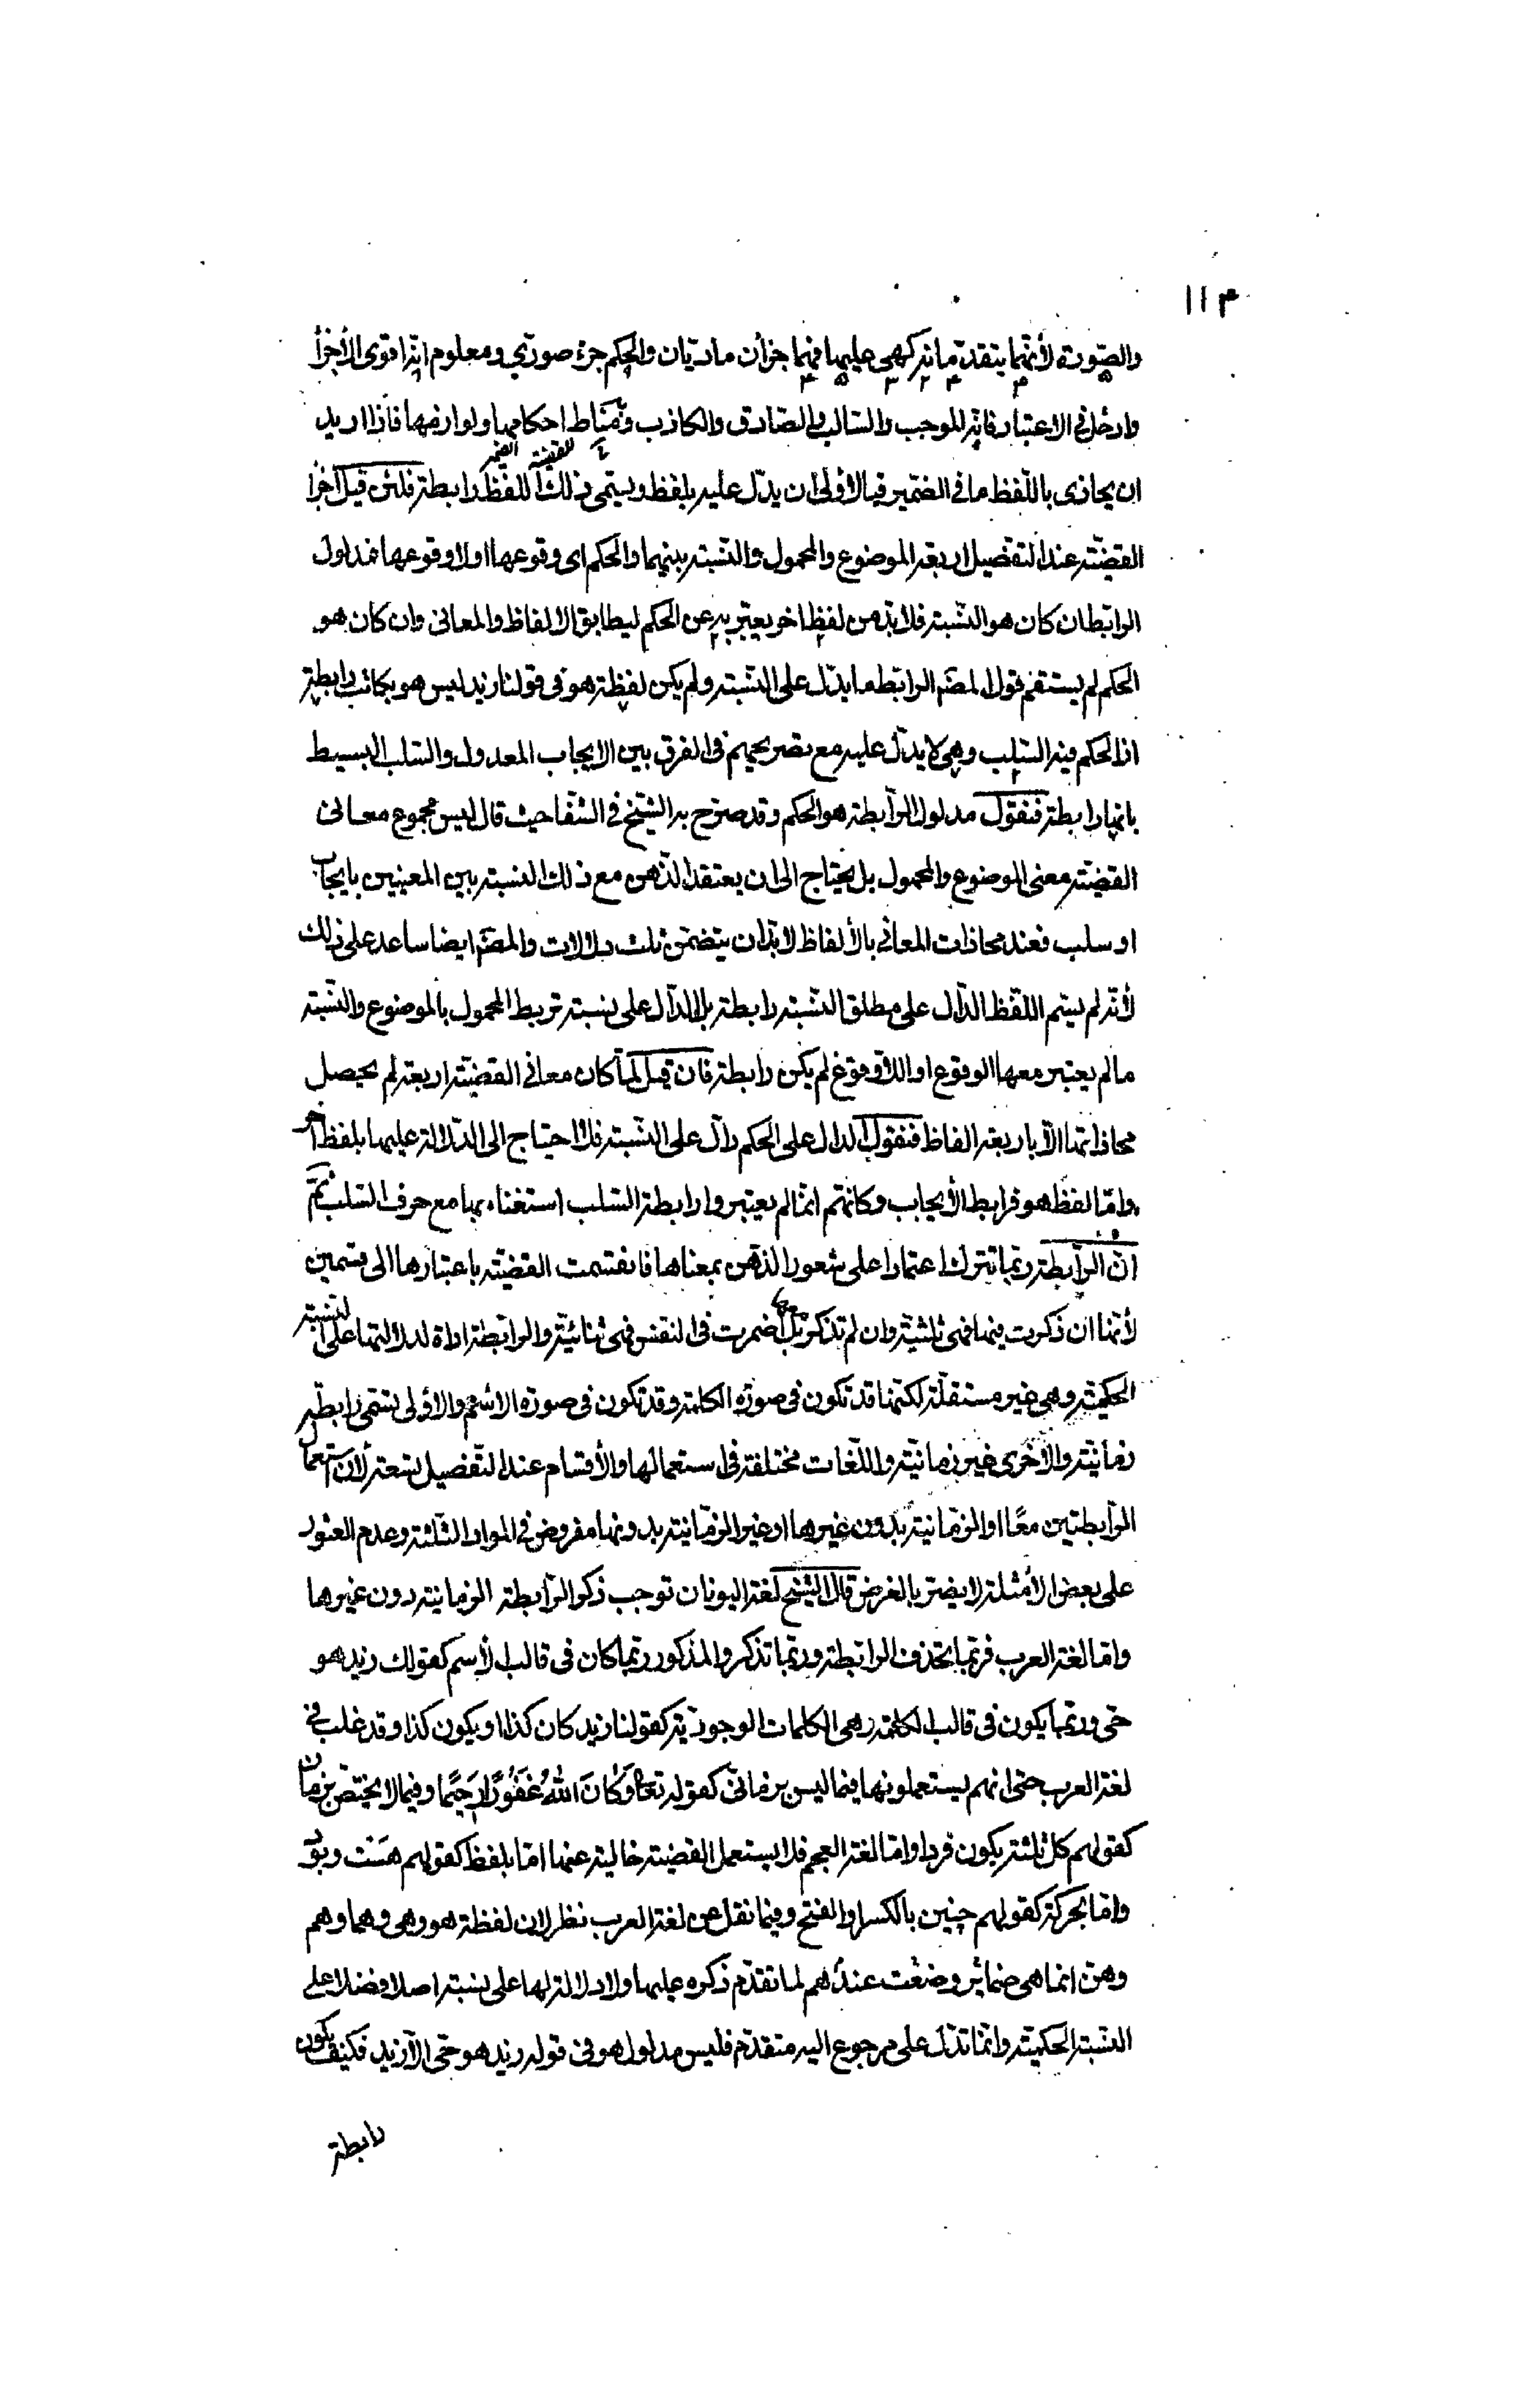 ١١٤
والصورة لأنهما بتقدمانه كهى عليهما فهما جزآن ماديان والحكم جزء صوري ومعلوم انه اقوى الأجزا
وادخل في الاعتبار فانه الموجب والسالب والصادق والكاذب ومناط احكامها ولوازمها فاذا اريد
للقضية الضمير
ان يحاذى باللفظ ما في الضمير فبالأولى ان يدل عليه بلفظ ويسمى ذلك اللفظ رابطة فلئن قيل اجزا
القضية عند التفصيل اربعة الموضوع والمحمول والنسبة بينهما والحكم اى وقوعها اولا وقوعها فمدلول
الرابطة ان كان هو النسبة فلا بد من لفظ اخر يعتبر به عن الحكم ليطابق الالفاظ والمعانى وان كان هو
الحكم لم يستقم قول المصنف الرابطة ما يدل على النسبة ولم يكن لفظة هو فى قولنا زيد ليس هو بكاتب رابطة
اذ الحكم فيه السلب وهى لا يدل عليه مع تصريحهم فى الفرق بين الايجاب المعدول والسلب البسيط
بانها رابطة فنقول مدلول الرابطة هو الحكم وقد صرح به الشيخ في الشفا حيث قال ليس مجموع معانى
القضية معنى الموضوع والمحمول بل يحتاج الى ان يعتقد الذهن مع ذلك النسبة بين المعنيين بايجاب
او سلب فعند محاذات المعانى بالألفاظ لابد ان يتضمن ثلث دلالات والمصنف ايضا ساعد على ذلك
لأنه لم يسم اللفظ الدال على مطلق النسبة رابطة بل الدال على نسبة تربط المحمول بالموضوع والنسبة
ما لم يعتبر معها الوقوع او اللاوقوع لم يكن رابطة فان قيل لما كان معانى القضية اربعة لم يحصل
محاذاتها الا باربعة الفاظ فنقول الدال على الحكم دال على النسبة فلا احتياج الى الدلالة عليها بلفظ اخر
واما لفظ هو فرابط الأيجاب وكانهم انما لم يعتبروا رابطة السلب استغناء بها مع حرف السلب ثم
ان الرابطة ربما تترك اعتمادا على شعور الذهن بمعناها فانقسمت القضية باعتبارها الى قسمين
لأنها ان ذكرت فيها فهى ثلثية وان لم تذكر بل اضمرت فى النفس فهى ثنائية والرابطة اداة لدلالتها على النسبة
الحكمية وهى غير مستقلة لكنها قد تكون فى صورة الكلمة وقد تكون فى صورة الاسم والاولى تسمى رابطة
زمانية والأخرى غير زمانية واللغات مختلفة فى استعمالها والأقسام عند التفصيل تسعة لأن استعمال
الرابطتين معًا او الزمانية بدون غيرها او غير الزمانية بدونها مفروض في المواد الثلثة وعدم العثور
على بعض الأمثلة لا يضر بالغرض قال الشيخ لغة اليونان توجب ذكر الرابطة الزمانية دون غيرها
واما لغة العرب فربما يحذف الرابطة وربما تذكر والمذكور ربما كان فى قالب الأسم كقولك زيد هو
حى وربما يكون فى قالب الكلمة وهى الكلمات الوجودية كقولنا زيد كان كذا او يكون كذا وقد غلب في
لغة العرب حتى انهم يستعملونها فيما ليس بزمانى كقوله تعالى وَكَانَ اللهُ غَفُورًا رَحِيمًا وفيما لا يختص بزمان
كقولهم كل ثلثة يكون فردا واما لغة العجم فلا يستعمل القضية خالية عنها اما بلفظ كقولهم هست وبود
واما بحركة كقولهم چنين بالكسر او الفتح وفيما نقل عن لغة العرب نظر لان لفظة هو وهى وهما وهم
وهن انما هى ضمائر وضعت عندهم لما تقدم ذكره عليها ولا دلالة لها على نسبة اصلا فضلا على
النسبة الحكمية وانما تدل على مرجوع اليه متقدم فليس مدلول هو فى قوله زيد هو حى الا زيد فكيف يكون
رابطة